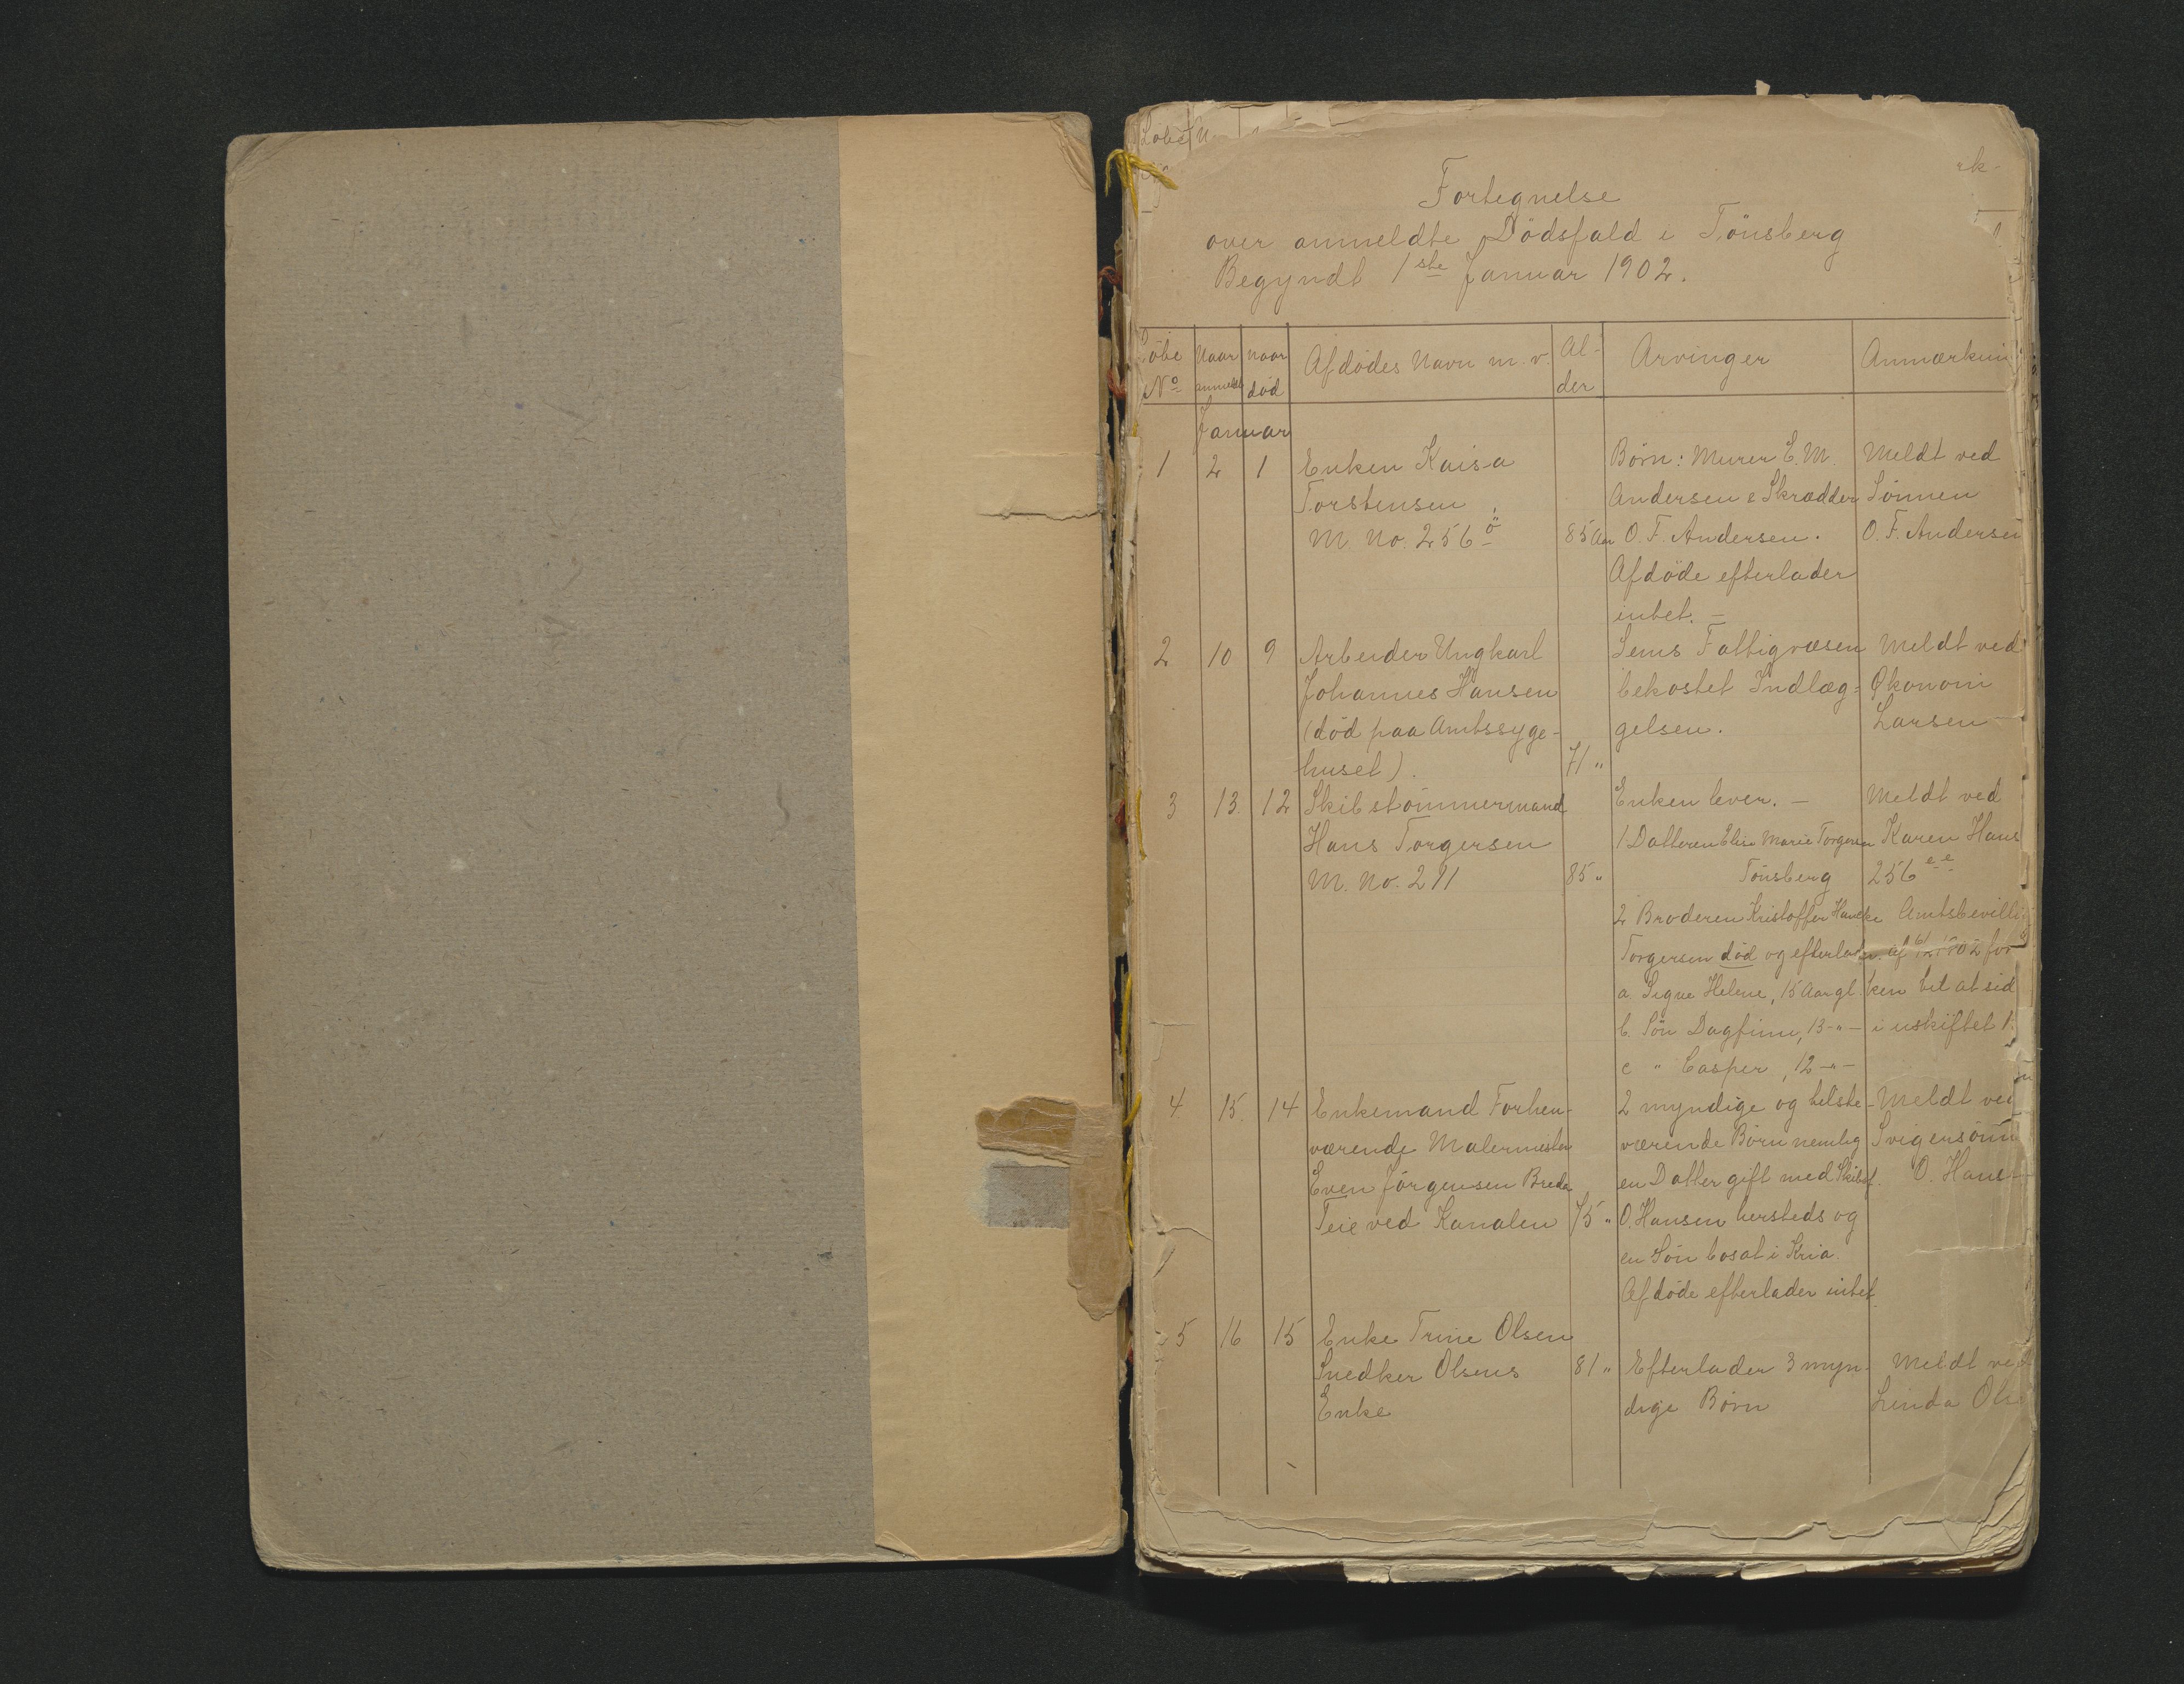 Fortegnelse
over anmeldte Dödsfald i Tönsberg
Begyndt 1ste Januar 1902.
Löbe No
Naar anmeldt
naar död
Afdödes Navn m. v.
Alder
Arvinger
Anmærknin
Januar
1 2 1
Enken Kaisa
Torstensen
M No. 256 ö
85 Aar
Börn: Murer C. M.
Andersen & Skrædder
O. F. Andersen.
Afdöde efterlader
intet. —
Meldt ved
Sönnen
O. F. Andersen
2 10 9
Arbeider Ungkarl
Johannes Hansen
(död paa Amtssyge-
huset).
71 "
Sems Fattigvæsen
bekostet Indlæg-
gelsen.
Meldt ved
Økonom
Larsen
3 13 12
Skibstömmermand
Hans Torgersen
M. No. 211
85 "
Enken lever. —
1 Datteren Elise Marie Torgersen
Tönsberg
2 Broderen Kristoffer
Torgersen död og efterlader
a. Signe Helene, 15 Aar gl
b. Sön Dagfinn, 13 - " -
c " Casper, 12 - " -
Meldt ved
Karen Hans
256 ee
Amtsbevilli
af 1902 for
ken til at sid
i uskiftet
4 15 14
Enkemand Forhen-
værende Malermester
Even Jörgensen Breda
Teie ved Kanalen
75 "
2 myndige og tilste-
værende Börn nemlig
en Datter gift med Skibsf.
O. Hansen hersteds og
en Sön bosat i Kria.
Afdöde efterlader intet.
Meldt ved
Svigersönn
O. Hans
5 16 15
Enke Trine Olsen
Snedker Olsens
Enke
81 "
Efterlader 3 myn-
dige Börn
Meldt ved
Linda Ols